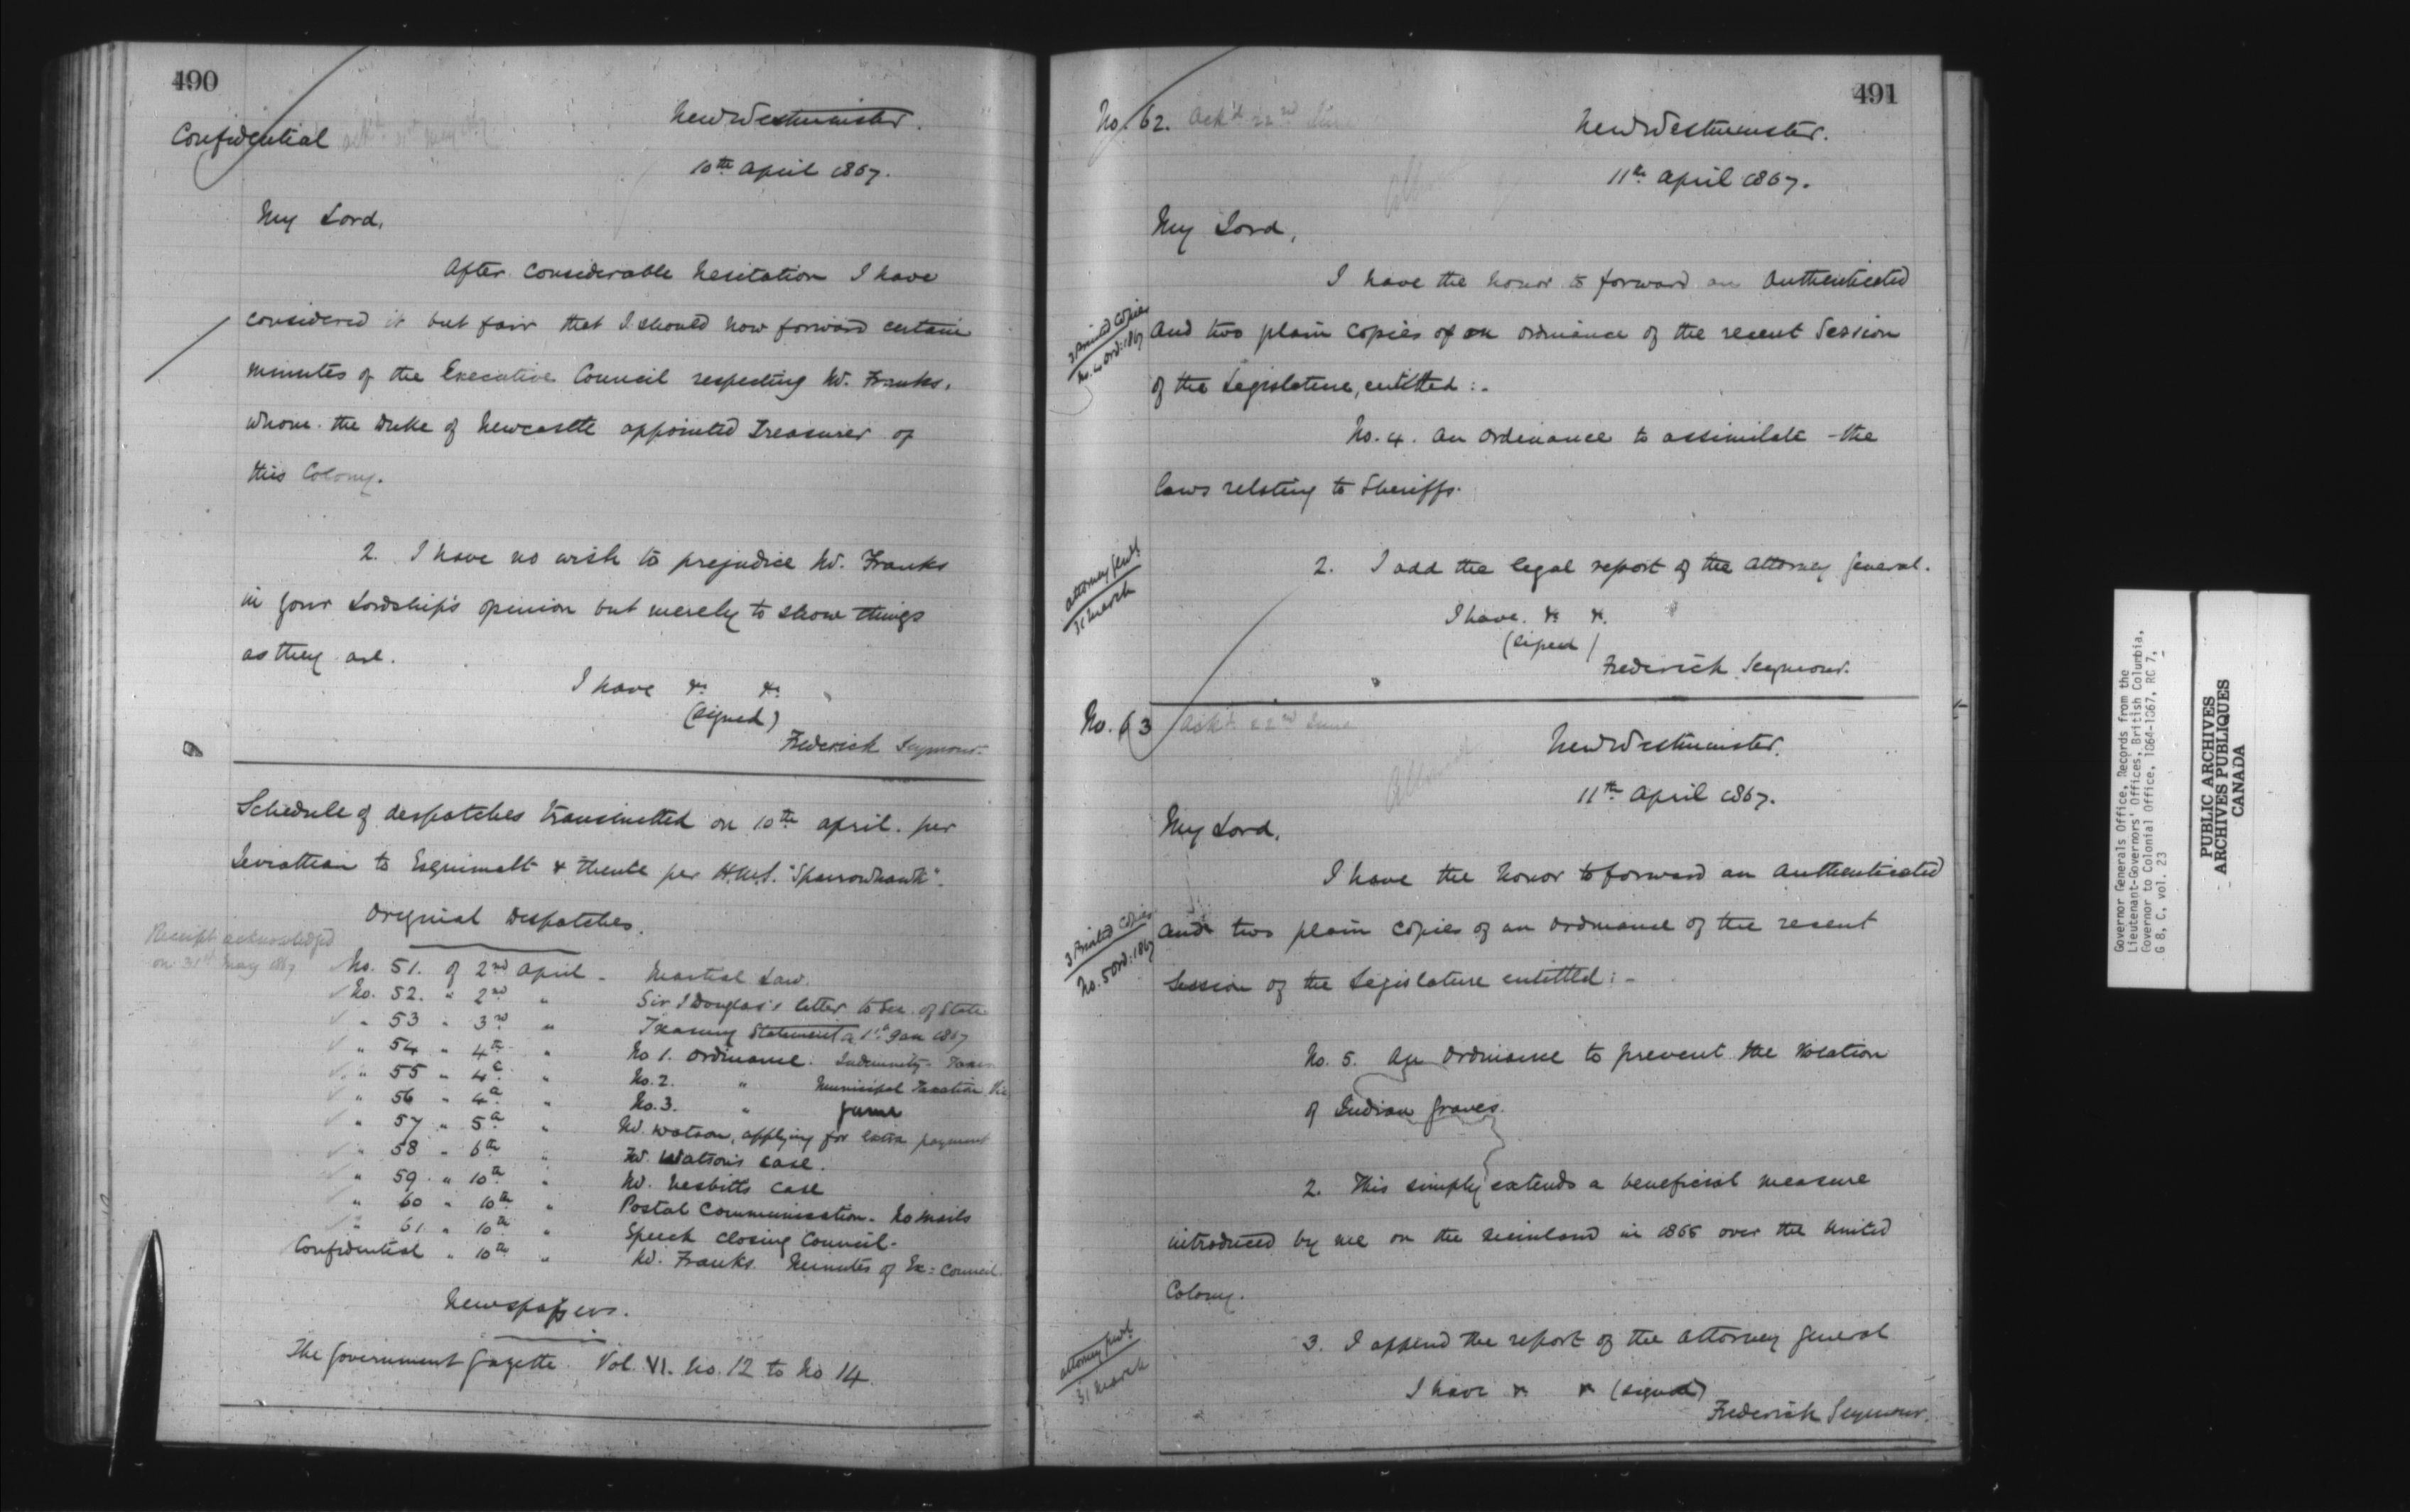 490
Confidential
New Westminster.
10th April 1867.
My Lord,
After considerable hesitation I have
considered it but fair that I should now forward certain
minutes of the Executive Council respecting Mr. Franks,
whom the Duke of Newcastle appointed Treasurer of
this Colony.
2. I have no wish to prejudice Mr. Franks
in your Lordship's opinion but merely to show things
as they are.
I have &c &c
(signed)
Frederick Seymour.
Schedule of despatches transmitted on 10th April. per
Leviathan to Esquimalt & thence per H.M.S. "Sparrowhawk".
Original Despatches.
Receipt acknowledged
on 31st May 1867
No. 51. of 2nd April - Martial Law.
No. 52. " 2nd " Sir J Douglas's letter to Sec. of State
" 53 " 3rd " Treasury Statement 1st Jan 1867
" 54 " 4th " No 1. Ordinance. Indemnity - Taxes
" 55 " 4th " No. 2. " Municipal Taxation Vic
" 56 " 4th " No. 3. " Game
" 57 " 5th " Mr. Watson, applying for extra payment
" 58 " 6th " Mr. Watson's case.
" 59 " 10th " Mr. Nesbitts case
" 60 " 10th " Postal Communication - No Mails
" 61 " 10th " Speech closing Council.
Confidential " 10th " Mr. Franks Minutes of Ex: Council.
Newspapers.
The Government Gazette. Vol. VI. No. 12 to No 14.
491
No. 62. Ack'd 22nd June
New Westminster.
11th April 1867.
My Lord,
I have the honor to forward an Authenticated
3 Printed Copies
No. 4 Ord: 1867
and two plain copies of an ordinance of the recent Session
of the Legislature, entitled :-
No. 4. An Ordinance to assimilate the
laws relating to Sheriffs.
Attorney Genl
31 March
2. I add the legal report of the Attorney General.
I have. &c &c.
(signed)
Frederick Seymour.
No. 63 Ack'd 22nd June
New Westminster.
11th April 1867.
My Lord,
I have the honor to forward an Authenticated
3 Printed Copies
No. 5 Ord: 1867
and two plain copies of an Ordinance of the recent
Session of the Legislature entitled :-
No. 5. An Ordinance to prevent the violation
of Indian Graves.
2. This simply extends a beneficial measure
introduced by me on the mainland in 1865 over the United
Colony.
Attorney Genl
31 March
3. I append the report of the Attorney General
I have &c &c (signed)
Frederick Seymour.
Governor Generals Office, Records from the
Lieutenant-Governors' Offices, British Columbia,
Governor to Colonial Office, 1864-1867, RG 7,
G 8, C, vol. 23
PUBLIC ARCHIVES
ARCHIVES PUBLIQUES
CANADA